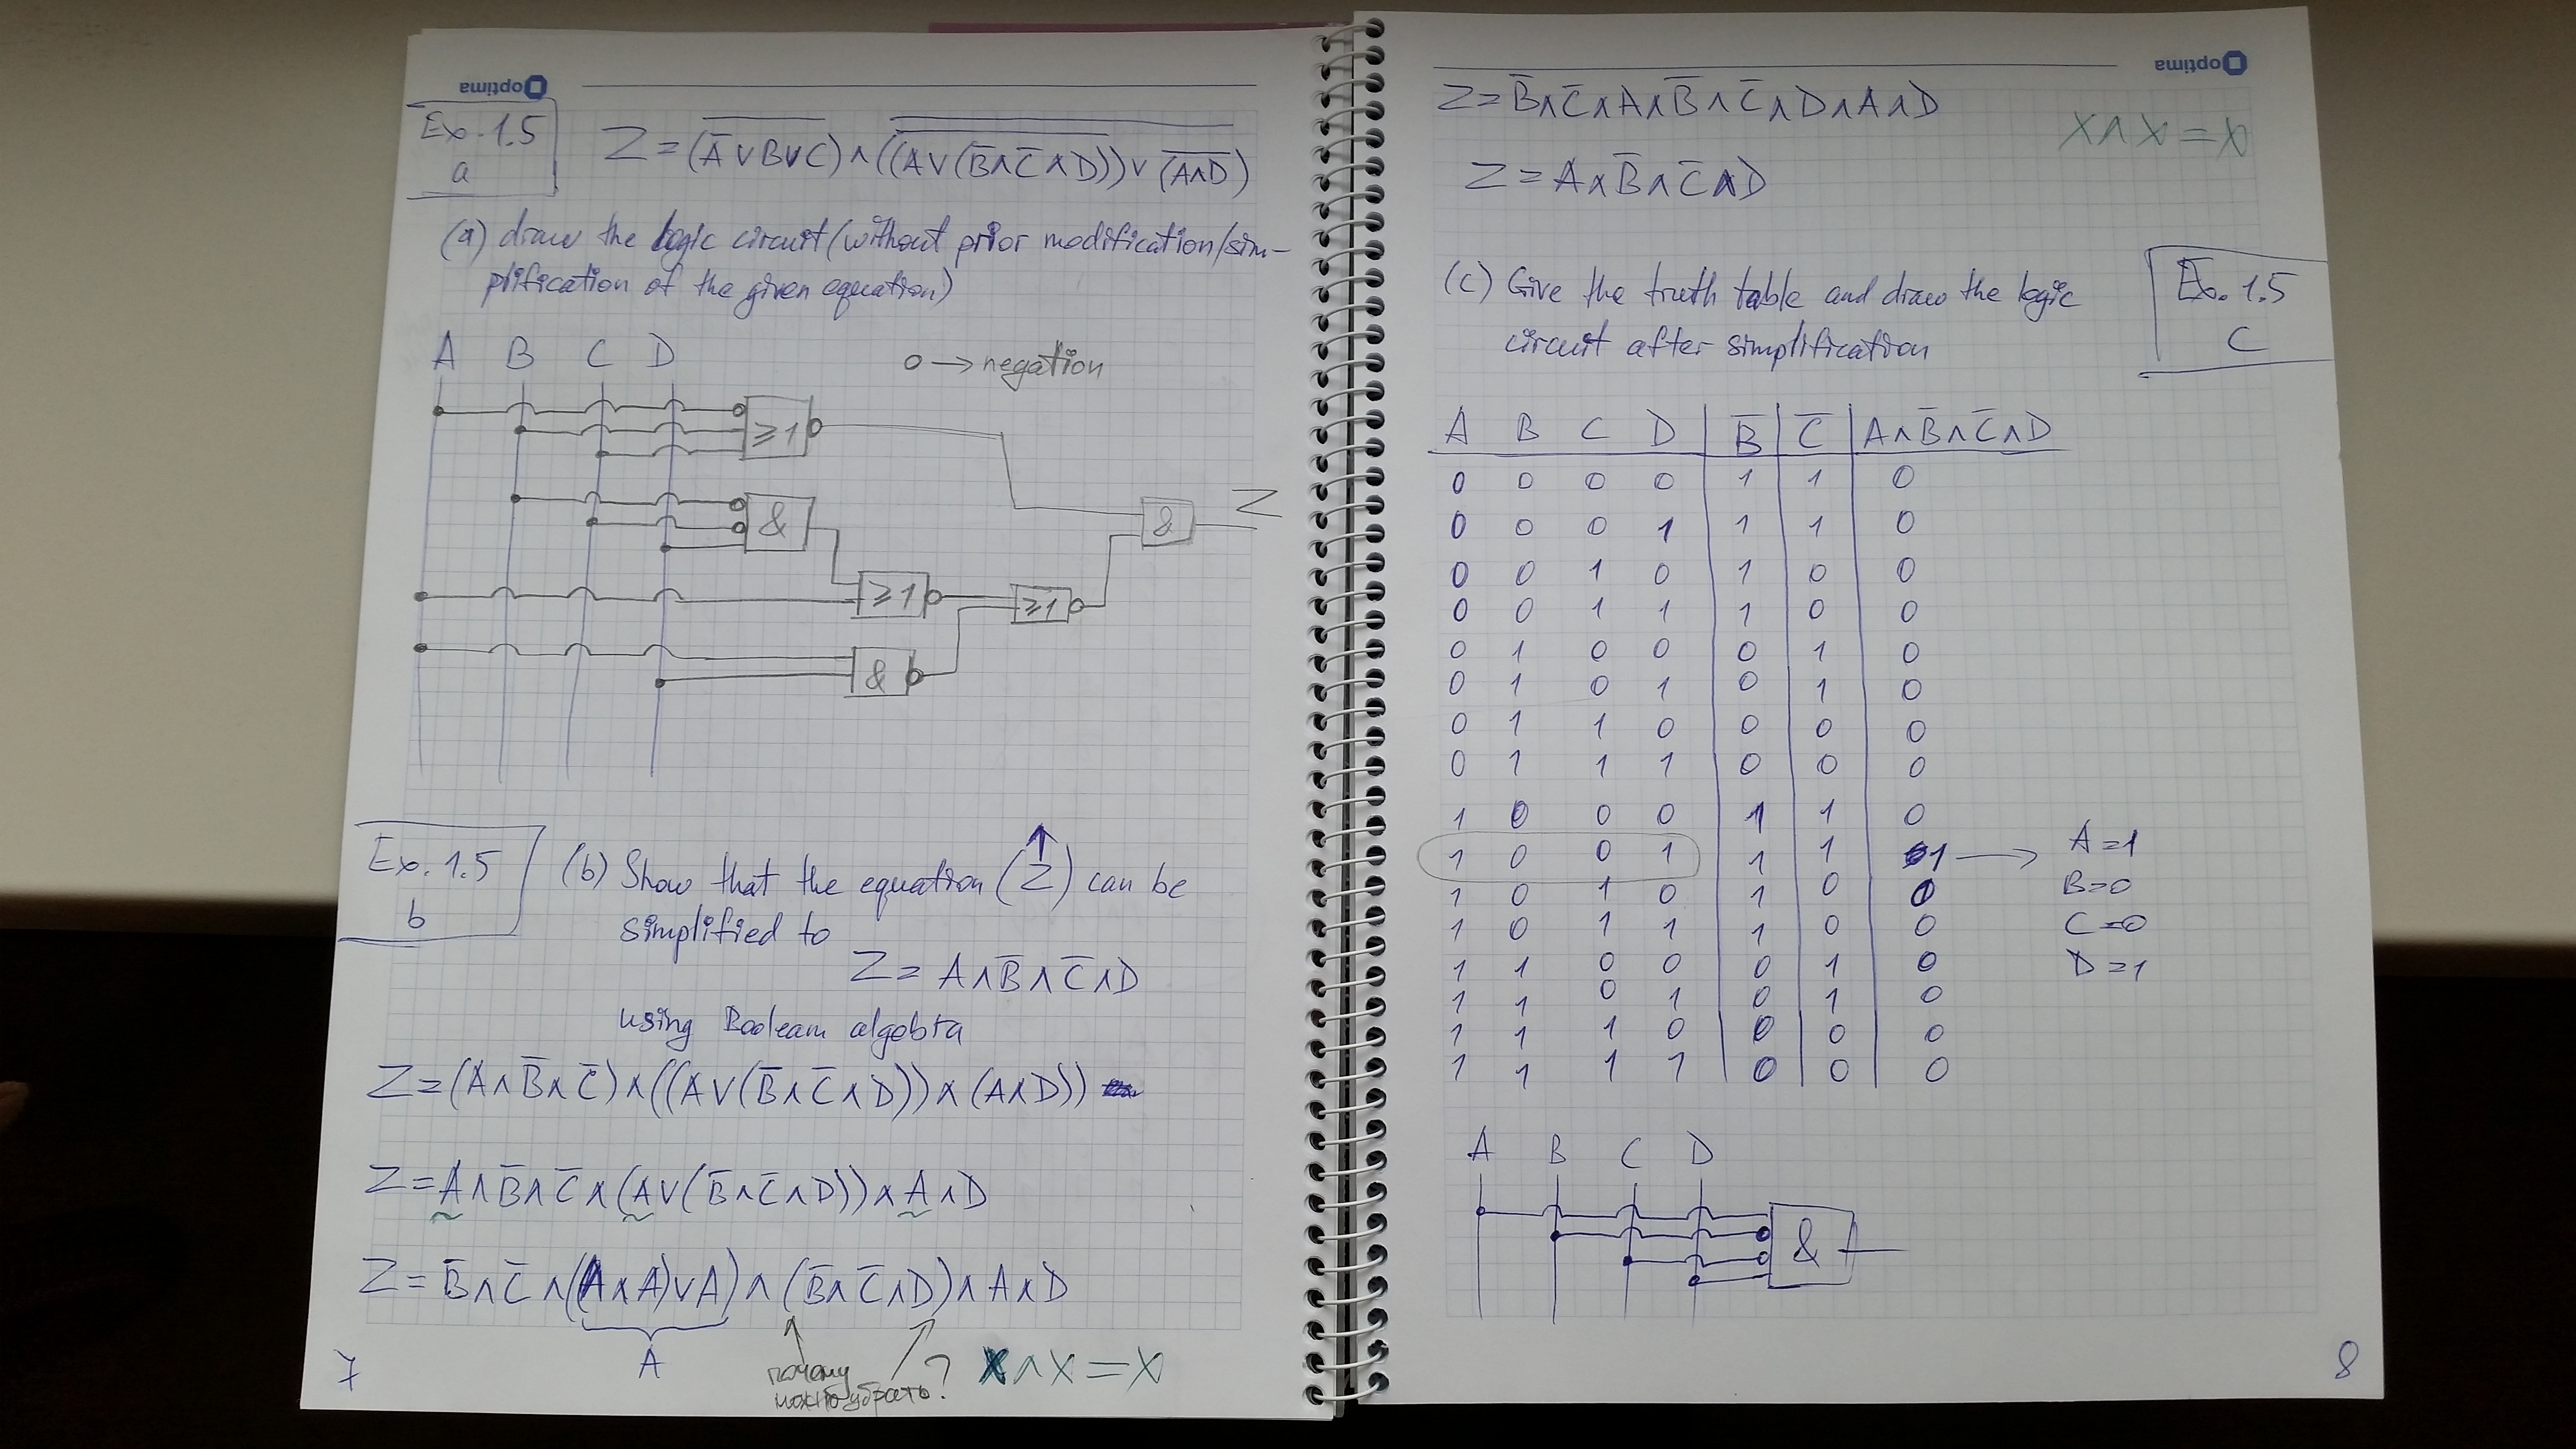 optima
Ex. 1.5
a
Z = (A̅ ∨ B ∨ C)̅ ∧ ((A ∨ (B̅ ∧ C̅ ∧ D))̅ ∨ (A ∧ D)̅)̅
(a) draw the logic circuit (without prior modification/sim-
plification of the given equation)
A B C D
o → negation
≥1
&
& Z
≥1 ≥1
&
Ex. 1.5
b
(b) Show that the equation (Z) can be
simplified to
Z = A ∧ B̅ ∧ C̅ ∧ D
using Boolean algebra
Z = (A ∧ B̅ ∧ C̅) ∧ ((A ∨ (B̅ ∧ C̅ ∧ D)) ∧ (A ∧ D))
Z = A ∧ B̅ ∧ C̅ ∧ (A ∨ (B̅ ∧ C̅ ∧ D)) ∧ A ∧ D
Z = B̅ ∧ C̅ ∧ ((A ∧ A) ∨ A) ∧ (B̅ ∧ C̅ ∧ D) ∧ A ∧ D
A
почему
можно убрать?
X ∧ X = X
7
optima
Z = B̅ ∧ C̅ ∧ A ∧ B̅ ∧ C̅ ∧ D ∧ A ∧ D
X ∧ X = X
Z = A ∧ B̅ ∧ C̅ ∧ D
(c) Give the truth table and draw the logic
circuit after simplification
Ex. 1.5
C
A B C D B̅ C̅ A ∧ B̅ ∧ C̅ ∧ D
0 0 0 0 1 1 0
0 0 0 1 1 1 0
0 0 1 0 1 0 0
0 0 1 1 1 0 0
0 1 0 0 0 1 0
0 1 0 1 0 1 0
0 1 1 0 0 0 0
0 1 1 1 0 0 0
1 0 0 0 1 1 0
1 0 0 1 1 1 1 →
1 0 1 0 1 0 0
1 0 1 1 1 0 0
1 1 0 0 0 1 0
1 1 0 1 0 1 0
1 1 1 0 0 0 0
1 1 1 1 0 0 0
A = 1
B = 0
C = 0
D = 1
A B C D
&
8